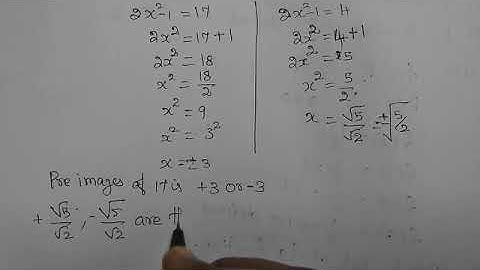 2x²-1 = 17
2x² = 17+1
2x² = 18
x² = 18/2
x² = 9
x² = 3²
x = ±3
2x²-1 = 4
2x² = 4+1
2x² = 5
x² = 5/2
x = √5/√2 = ±√5/2
Pre images of 17 is +3 or -3
+ √5/√2, -√5/√2 are